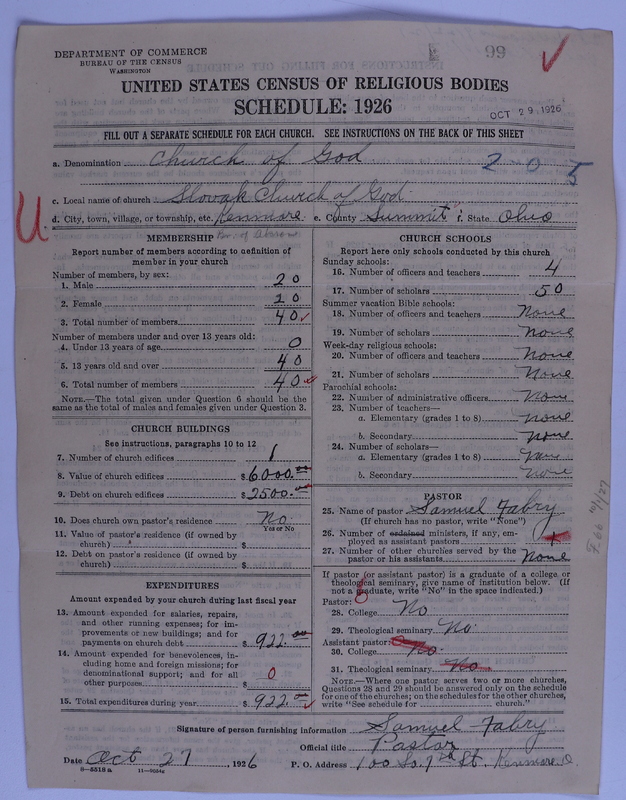 99
DEPARTMENT OF COMMERCE
BUREAU OF THE CENSUS
WASHINGTON
UNITED STATES CENSUS OF RELIGIOUS BODIES
SCHEDULE: 1926
OCT 29 1926
FILL OUT A SEPARATE SCHEDULE FOR EACH CHURCH. SEE INSTRUCTIONS ON THE BACK OF THIS SHEET
a. Denomination Church of God
2 0 5
c. Local name of church Slovak Church of God
U
d. City, town, village, or township, etc. Kenmore e. County Summit f. State Ohio
MEMBERSHIP
Report number of members according to definition of member in your church
Number of members, by sex:
1. Male 20
2. Female 20
3. Total number of members 40
Number of members under and over 13 years old:
4. Under 13 years of age 0
5. 13 years old and over 40
6. Total number of members 40
NOTE.—The total given under Question 6 should be the same as the total of males and females given under Question 3.
CHURCH BUILDINGS
See instructions, paragraphs 10 to 12
7. Number of church edifices 1
8. Value of church edifices $6000.00
9. Debt on church edifices $2500.00
10. Does church own pastor's residence No
Yes or No
11. Value of pastor's residence (if owned by church) $
12. Debt on pastor's residence (if owned by church) $
EXPENDITURES
Amount expended by your church during last fiscal year
13. Amount expended for salaries, repairs, and other running expenses; for improvements or new buildings; and for payments on church debt $922.00
14. Amount expended for benevolences, including home and foreign missions; for denominational support; and for all other purposes $ 0
15. Total expenditures during year $922.00
CHURCH SCHOOLS
Report here only schools conducted by this church
Sunday schools:
16. Number of officers and teachers 4
17. Number of scholars 50
Summer vacation Bible schools:
18. Number of officers and teachers None
19. Number of scholars None
Week-day religious schools:
20. Number of officers and teachers None
21. Number of scholars None
Parochial schools:
22. Number of administrative officers None
23. Number of teachers—
a. Elementary (grades 1 to 8) None
b. Secondary None
24. Number of scholars—
a. Elementary (grades 1 to 8) None
b. Secondary None
PASTOR
25. Name of pastor Samuel Fabry
(If church has no pastor, write "None")
26. Number of ordained ministers, if any, employed as assistant pastors
27. Number of other churches served by the pastor or his assistants None
If pastor (or assistant pastor) is a graduate of a college or theological seminary, give name of institution below. (If not a graduate, write "No" in the space indicated.)
Pastor:
28. College No
29. Theological seminary No
Assistant pastor:
30. College No
31. Theological seminary No
NOTE.—Where one pastor serves two or more churches, Questions 28 and 29 should be answered only on the schedule for one of the churches; on the schedules for the other churches, write "See schedule for church."
Signature of person furnishing information Samuel Fabry
Official title Pastor
Date Oct 27, 1926 P. O. Address 100 So. 7th St. Kenmore, O.
8-5518 a 11-9054